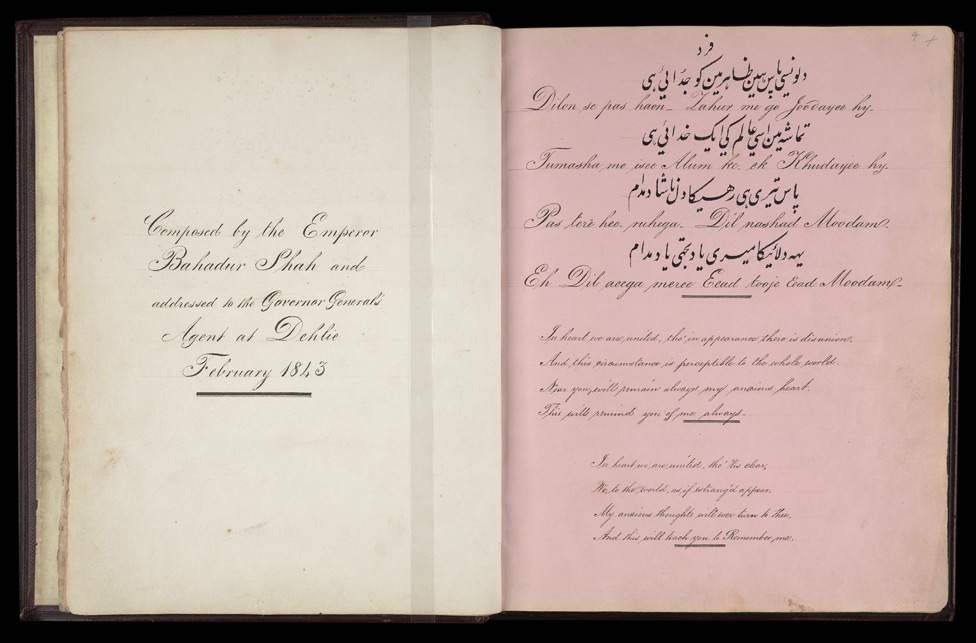 Composed by the Emperor
Bahadur Shah and
addressed to the Governor General's
Agent at Dehlie
February 1843
فرد
دلونسی پاس ہین ظاہرمین کو جدائی ہی
Dilon se pas haen_ Zahur me go Joodayee hy_
تماشہ مین اسی عالم کی ایک خدائی ہی
Tumasha me isee Alum ke. ek Khudayee hy.
پاس تیری ہی رہیگا دل ناشاد مدام
Pas tere hee ruhega_ Dil nashad Moodam.
یہہ دلائیگا میری یاد تجھی یاد مدام
Eh Dil aeega meree Eead tooje Eead Moodam_
In heart we are united, tho' in appearance there is disunion.
And this circumstance is perceptible to the whole world.
Near you, will remain always my anxious heart.
This will remind you of me always_
In heart we are united, tho' 'tis clear,
We, to the world, as if estrang'd appear.
My anxious thoughts will ever turn to thee,
And this will teach you to Remember me.